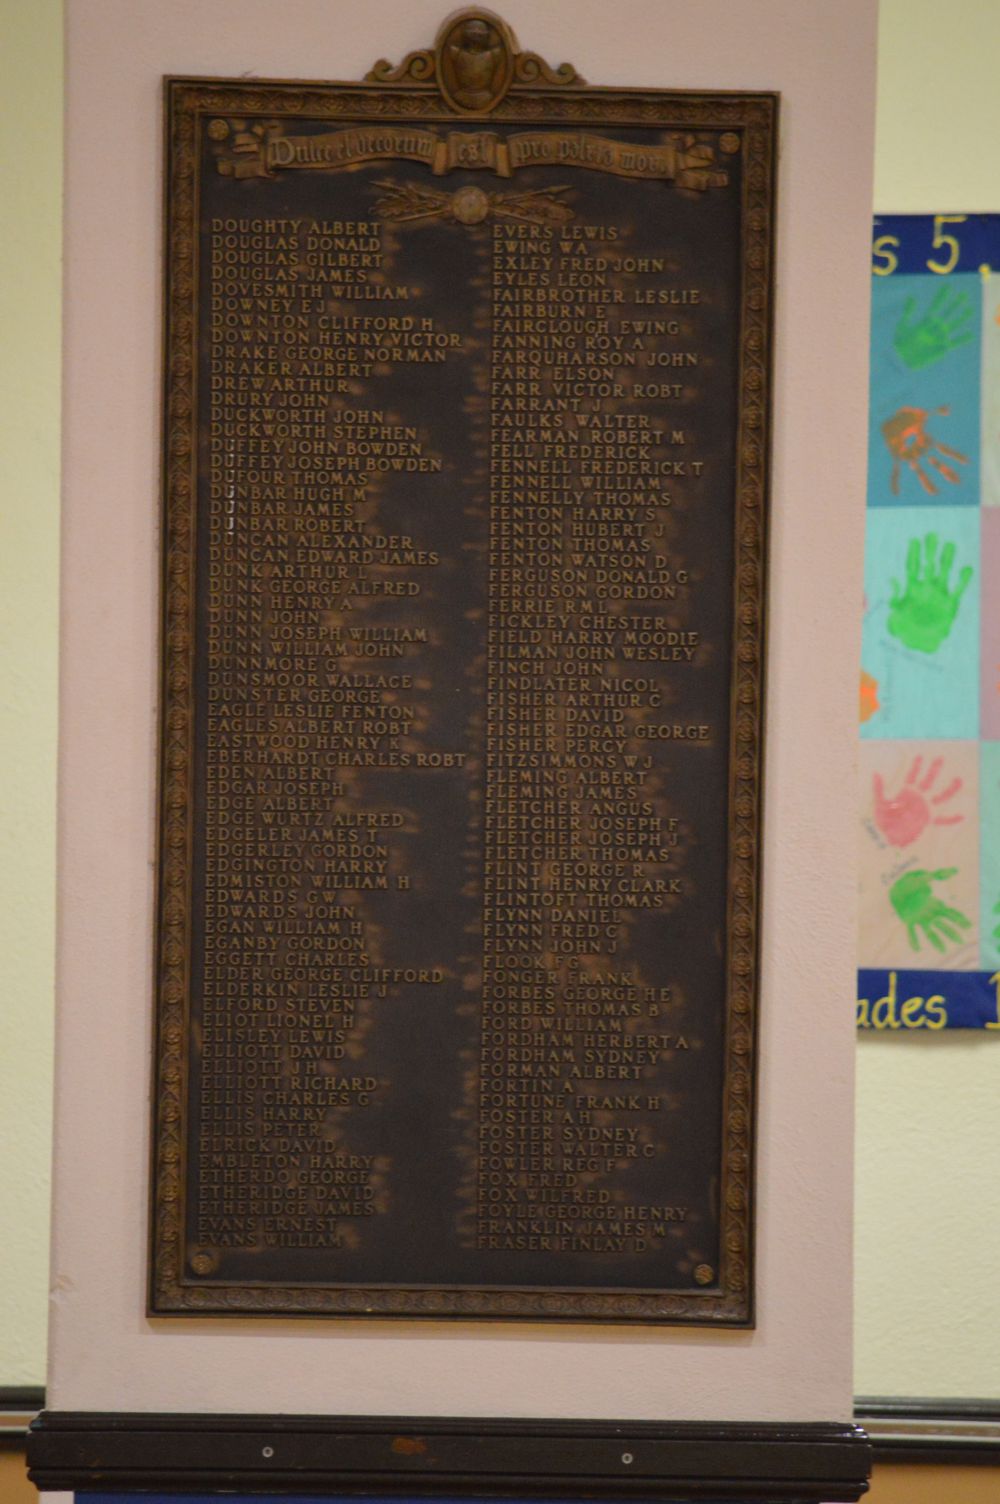 Dulce et decorum est pro patria mori
DOUGHTY ALBERT
DOUGLAS DONALD
DOUGLAS GILBERT
DOUGLAS JAMES
DOVESMITH WILLIAM
DOWNEY E J
DOWNTON CLIFFORD H
DOWNTON HENRY VICTOR
DRAKE GEORGE NORMAN
DRAKER ALBERT
DREW ARTHUR
DRURY JOHN
DUCKWORTH JOHN
DUCKWORTH STEPHEN
DUFFEY JOHN BOWDEN
DUFFEY JOSEPH BOWDEN
DUFOUR THOMAS
DUNBAR HUGH M
DUNBAR JAMES
DUNBAR ROBERT
DUNCAN ALEXANDER
DUNCAN EDWARD JAMES
DUNK ARTHUR L
DUNK GEORGE ALFRED
DUNN HENRY A
DUNN JOHN
DUNN JOSEPH WILLIAM
DUNN WILLIAM JOHN
DUNNMORE G
DUNSMOOR WALLACE
DUNSTER GEORGE
EAGLE LESLIE FENTON
EAGLES ALBERT ROBT
EASTWOOD HENRY K
EBERHARDT CHARLES ROBT
EDEN ALBERT
EDGAR JOSEPH
EDGE ALBERT
EDGE WURTZ ALFRED
EDGELER JAMES T
EDGERLEY GORDON
EDGINGTON HARRY
EDMISTON WILLIAM H
EDWARDS G W
EDWARDS JOHN
EGAN WILLIAM H
EGANBY GORDON
EGGETT CHARLES
ELDER GEORGE CLIFFORD
ELDERKIN LESLIE J
ELFORD STEVEN
ELIOT LIONEL H
ELISLEY LEWIS
ELLIOTT DAVID
ELLIOTT J H
ELLIOTT RICHARD
ELLIS CHARLES G
ELLIS HARRY
ELLIS PETER
ELRICK DAVID
EMBLETON HARRY
ETHERDO GEORGE
ETHERIDGE DAVID
ETHERIDGE JAMES
EVANS ERNEST
EVANS WILLIAM
EVERS LEWIS
EWING W A
EXLEY FRED JOHN
EYLES LEON
FAIRBROTHER LESLIE
FAIRBURN E
FAIRCLOUGH EWING
FANNING ROY A
FARQUHARSON JOHN
FARR ELSON
FARR VICTOR ROBT
FARRANT J
FAULKS WALTER
FEARMAN ROBERT M
FELL FREDERICK
FENNELL FREDERICK T
FENNELL WILLIAM
FENNELLY THOMAS
FENTON HARRY S
FENTON HUBERT J
FENTON THOMAS
FENTON WATSON D
FERGUSON DONALD G
FERGUSON GORDON
FERRIE R.M.L
FICKLEY CHESTER
FIELD HARRY MOODIE
FILMAN JOHN WESLEY
FINCH JOHN
FINDLATER NICOL
FISHER ARTHUR C
FISHER DAVID
FISHER EDGAR GEORGE
FISHER PERCY
FITZSIMMONS W J
FLEMING ALBERT
FLEMING JAMES
FLETCHER ANGUS
FLETCHER JOSEPH F
FLETCHER JOSEPH J
FLETCHER THOMAS
FLINT GEORGE R
FLINT HENRY CLARK
FLINTOFT THOMAS
FLYNN DANIEL
FLYNN FRED C
FLYNN JOHN J
FLOOK F G
FONGER FRANK
FORBES GEORGE HE
FORBES THOMAS B
FORD WILLIAM
FORDHAM HERBERT A
FORDHAM SYDNEY
FORMAN ALBERT
FORTIN A
FORTUNE FRANK H
FOSTER A H
FOSTER SYDNEY
FOSTER WALTER C
FOWLER REG F
FOX FRED
FOX WILFRED
FOYLE GEORGE HENRY
FRANKLIN JAMES M
FRASER FINLAY D
s 5,
ades 1